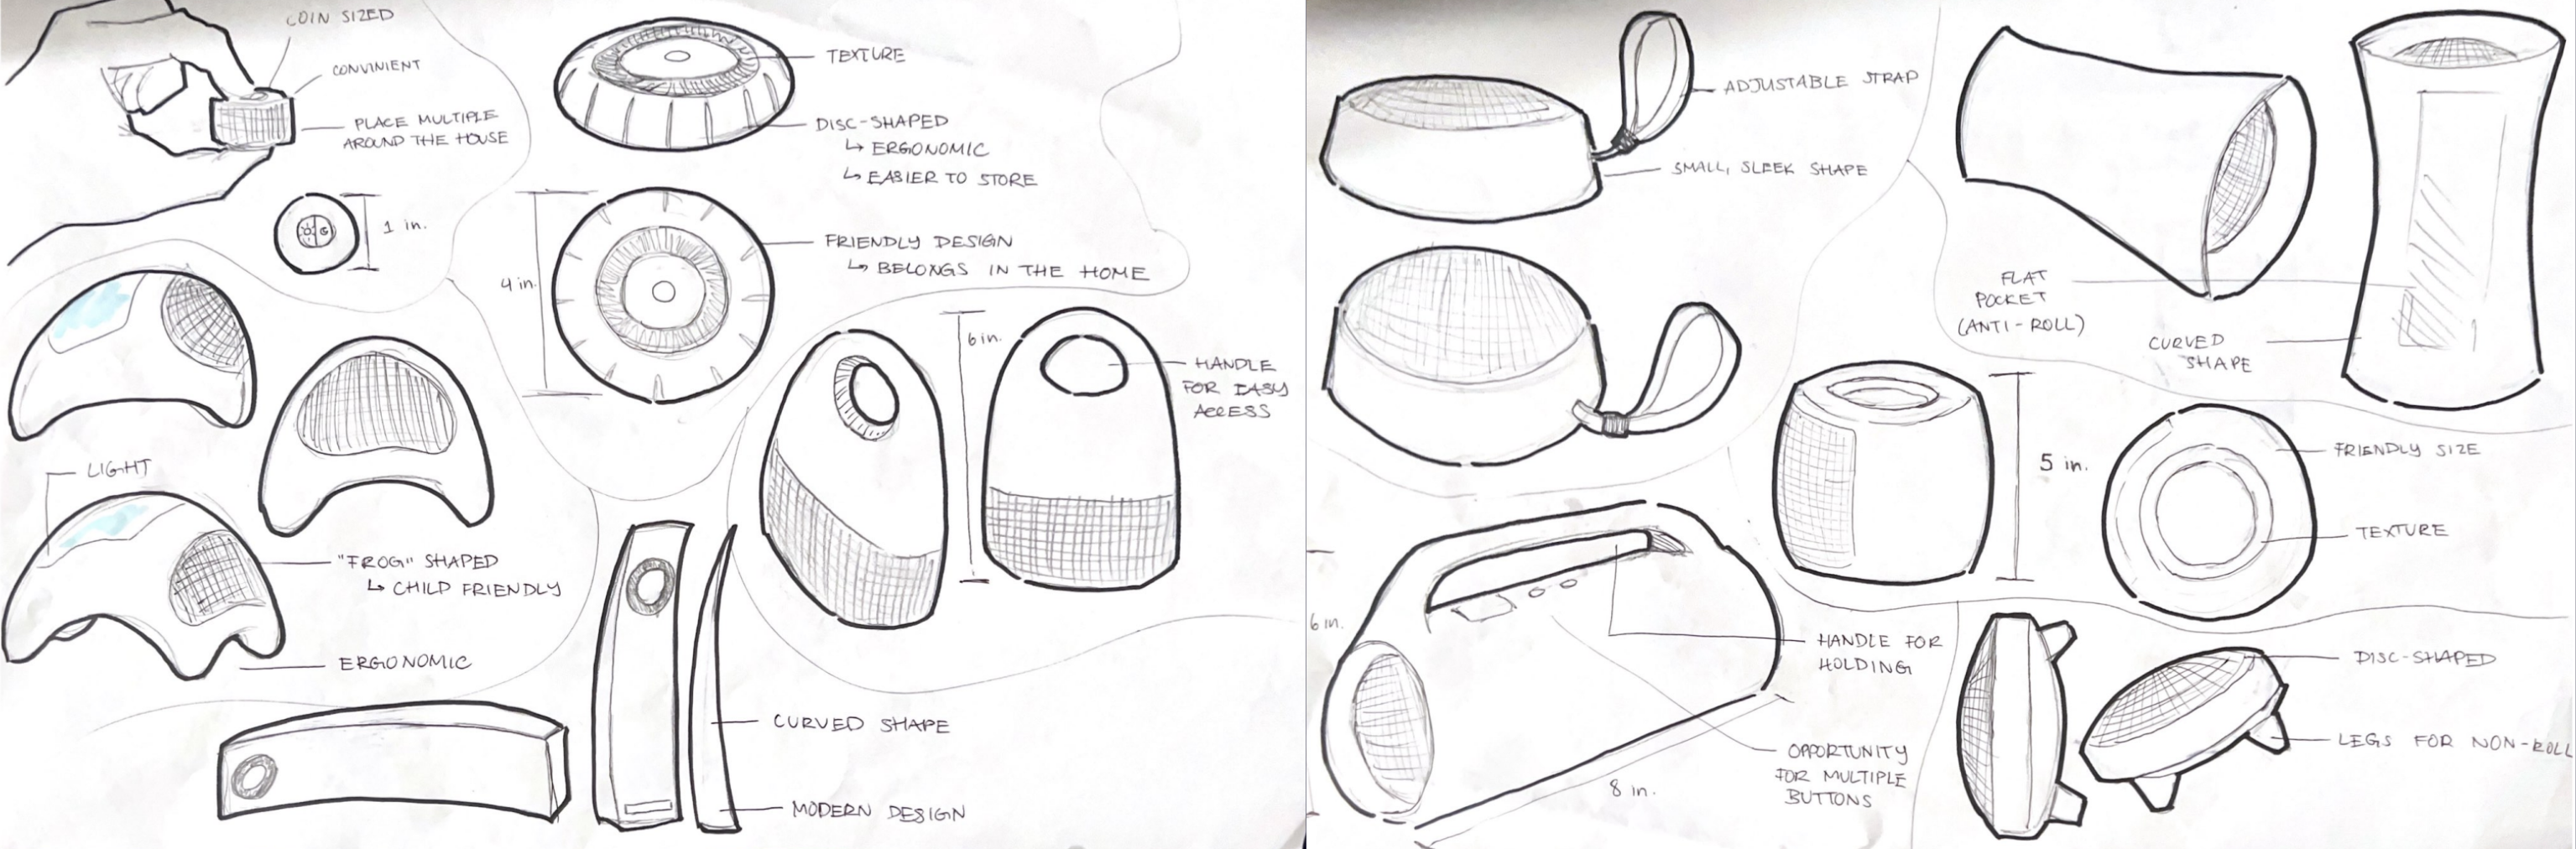 COIN SIZED
CONVINIENT
PLACE MULTIPLE
AROUND THE HOUSE
1 in.
TEXTURE
DISC-SHAPED
↳ ERGONOMIC
↳ EASIER TO STORE
4 in.
FRIENDLY DESIGN
↳ BELONGS IN THE HOME
LIGHT
"FROG" SHAPED
↳ CHILD FRIENDLY
ERGONOMIC
6 in.
HANDLE
FOR EASY
ACCESS
CURVED SHAPE
MODERN DESIGN
ADJUSTABLE STRAP
SMALL, SLEEK SHAPE
FLAT
POCKET
(ANTI-ROLL)
CURVED
SHAPE
5 in.
FRIENDLY SIZE
TEXTURE
6 in.
8 in.
HANDLE FOR
HOLDING
OPPORTUNITY
FOR MULTIPLE
BUTTONS
DISC-SHAPED
LEGS FOR NON-ROLL